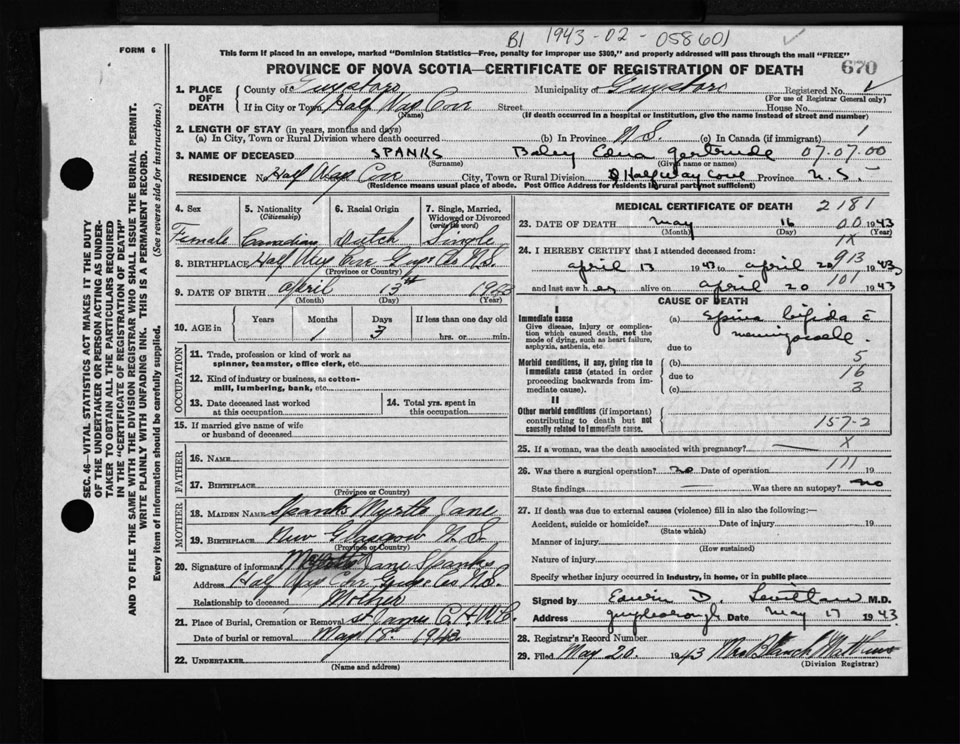 B1 1943-02-058601
FORM 6
This form if placed in an envelope, marked "Dominion Statistics—Free, penalty for improper use $300," and properly addressed will pass through the mail "FREE"
PROVINCE OF NOVA SCOTIA—CERTIFICATE OF REGISTRATION OF DEATH 670
1. PLACE OF DEATH
County of Guysboro Municipality of Guysboro Registered No.
(For use of Registrar General only)
If in City or Town, Half Way Cov Street House No.
(Name) (If death occurred in a hospital or institution, give the name instead of street and number)
2. LENGTH OF STAY (in years, months and days)
(a) In City, Town or Rural Division where death occurred (b) In Province N.S. (c) In Canada (if immigrant) 1
3. NAME OF DECEASED SPANKS Edna Gertrude 07.07.00
(Surname) (Given name or names)
RESIDENCE No. Half Way Cov City, Town or Rural Division Halfway Cove Province N.S.
(Residence means usual place of abode. Post Office Address for residents in rural parts not sufficient)
4. Sex 5. Nationality (Citizenship) 6. Racial Origin 7. Single, Married, Widowed or Divorced (write the word)
Female Canadian Dutch Single
8. BIRTHPLACE Half Way Cov Guys Co N.S.
(Province or Country)
9. DATE OF BIRTH April 13th 1943
(Month) (Day) (Year)
10. AGE in Years Months Days If less than one day old
1 3 hrs. or min.
OCCUPATION
11. Trade, profession or kind of work as spinner, teamster, office clerk, etc.
12. Kind of industry or business, as cotton-mill, lumbering, bank, etc.
13. Date deceased last worked at this occupation 14. Total yrs. spent in this occupation
15. If married give name of wife or husband of deceased
FATHER
16. NAME
17. BIRTHPLACE
(Province or Country)
MOTHER
18. MAIDEN NAME Spanks Myrtle Jane
19. BIRTHPLACE New Glasgow N.S.
(Province or Country)
20. Signature of informant Myrtle Jane Spanks
Address Half Way Cov Guys Co N.S.
Relationship to deceased Mother
21. Place of Burial, Cremation or Removal St James
Date of burial or removal May 18th 1943
22. UNDERTAKER
(Name and address)
MEDICAL CERTIFICATE OF DEATH 2181
23. DATE OF DEATH May 16 00 1943
(Month) (Day) (Year)
1X
24. I HEREBY CERTIFY that I attended deceased from:
913
April 13 1943 to April 20 1943
and last saw her alive on April 20 101 1943
CAUSE OF DEATH
I
Immediate cause
Give disease, injury or complication which caused death, not the mode of dying, such as heart failure, asphyxia, asthenia, etc.
(a) Spina bifida c̄
meningocele.
due to
Morbid conditions, if any, giving rise to immediate cause (stated in order proceeding backwards from immediate cause).
(b) 5
due to 16
(c) 3
II
Other morbid conditions (if important) contributing to death but not causally related to immediate cause.
157-2
25. If a woman, was the death associated with pregnancy? X
111
26. Was there a surgical operation? no Date of operation 19
State findings Was there an autopsy? no
27. If death was due to external causes (violence) fill in also the following:—
Accident, suicide or homicide? Date of injury 19
(State which)
Manner of injury
(How sustained)
Nature of injury
Specify whether injury occurred in industry, in home, or in public place
Signed by Edwin D. M.D.
Address Guysborough Date May 17 1943
28. Registrar's Record Number
29. Filed May 20 1943 Mrs Blanch Matthews
(Division Registrar)
SEC. 46—VITAL STATISTICS ACT MAKES IT THE DUTY
OF THE UNDERTAKER OR PERSON ACTING AS UNDER-
TAKER TO OBTAIN ALL THE PARTICULARS REQUIRED
IN THE "CERTIFICATE OF REGISTRATION OF DEATH"
AND TO FILE THE SAME WITH THE DIVISION REGISTRAR WHO SHALL ISSUE THE BURIAL PERMIT.
WRITE PLAINLY WITH UNFADING INK. THIS IS A PERMANENT RECORD.
Every item of information should be carefully supplied. (See reverse side for instructions.)